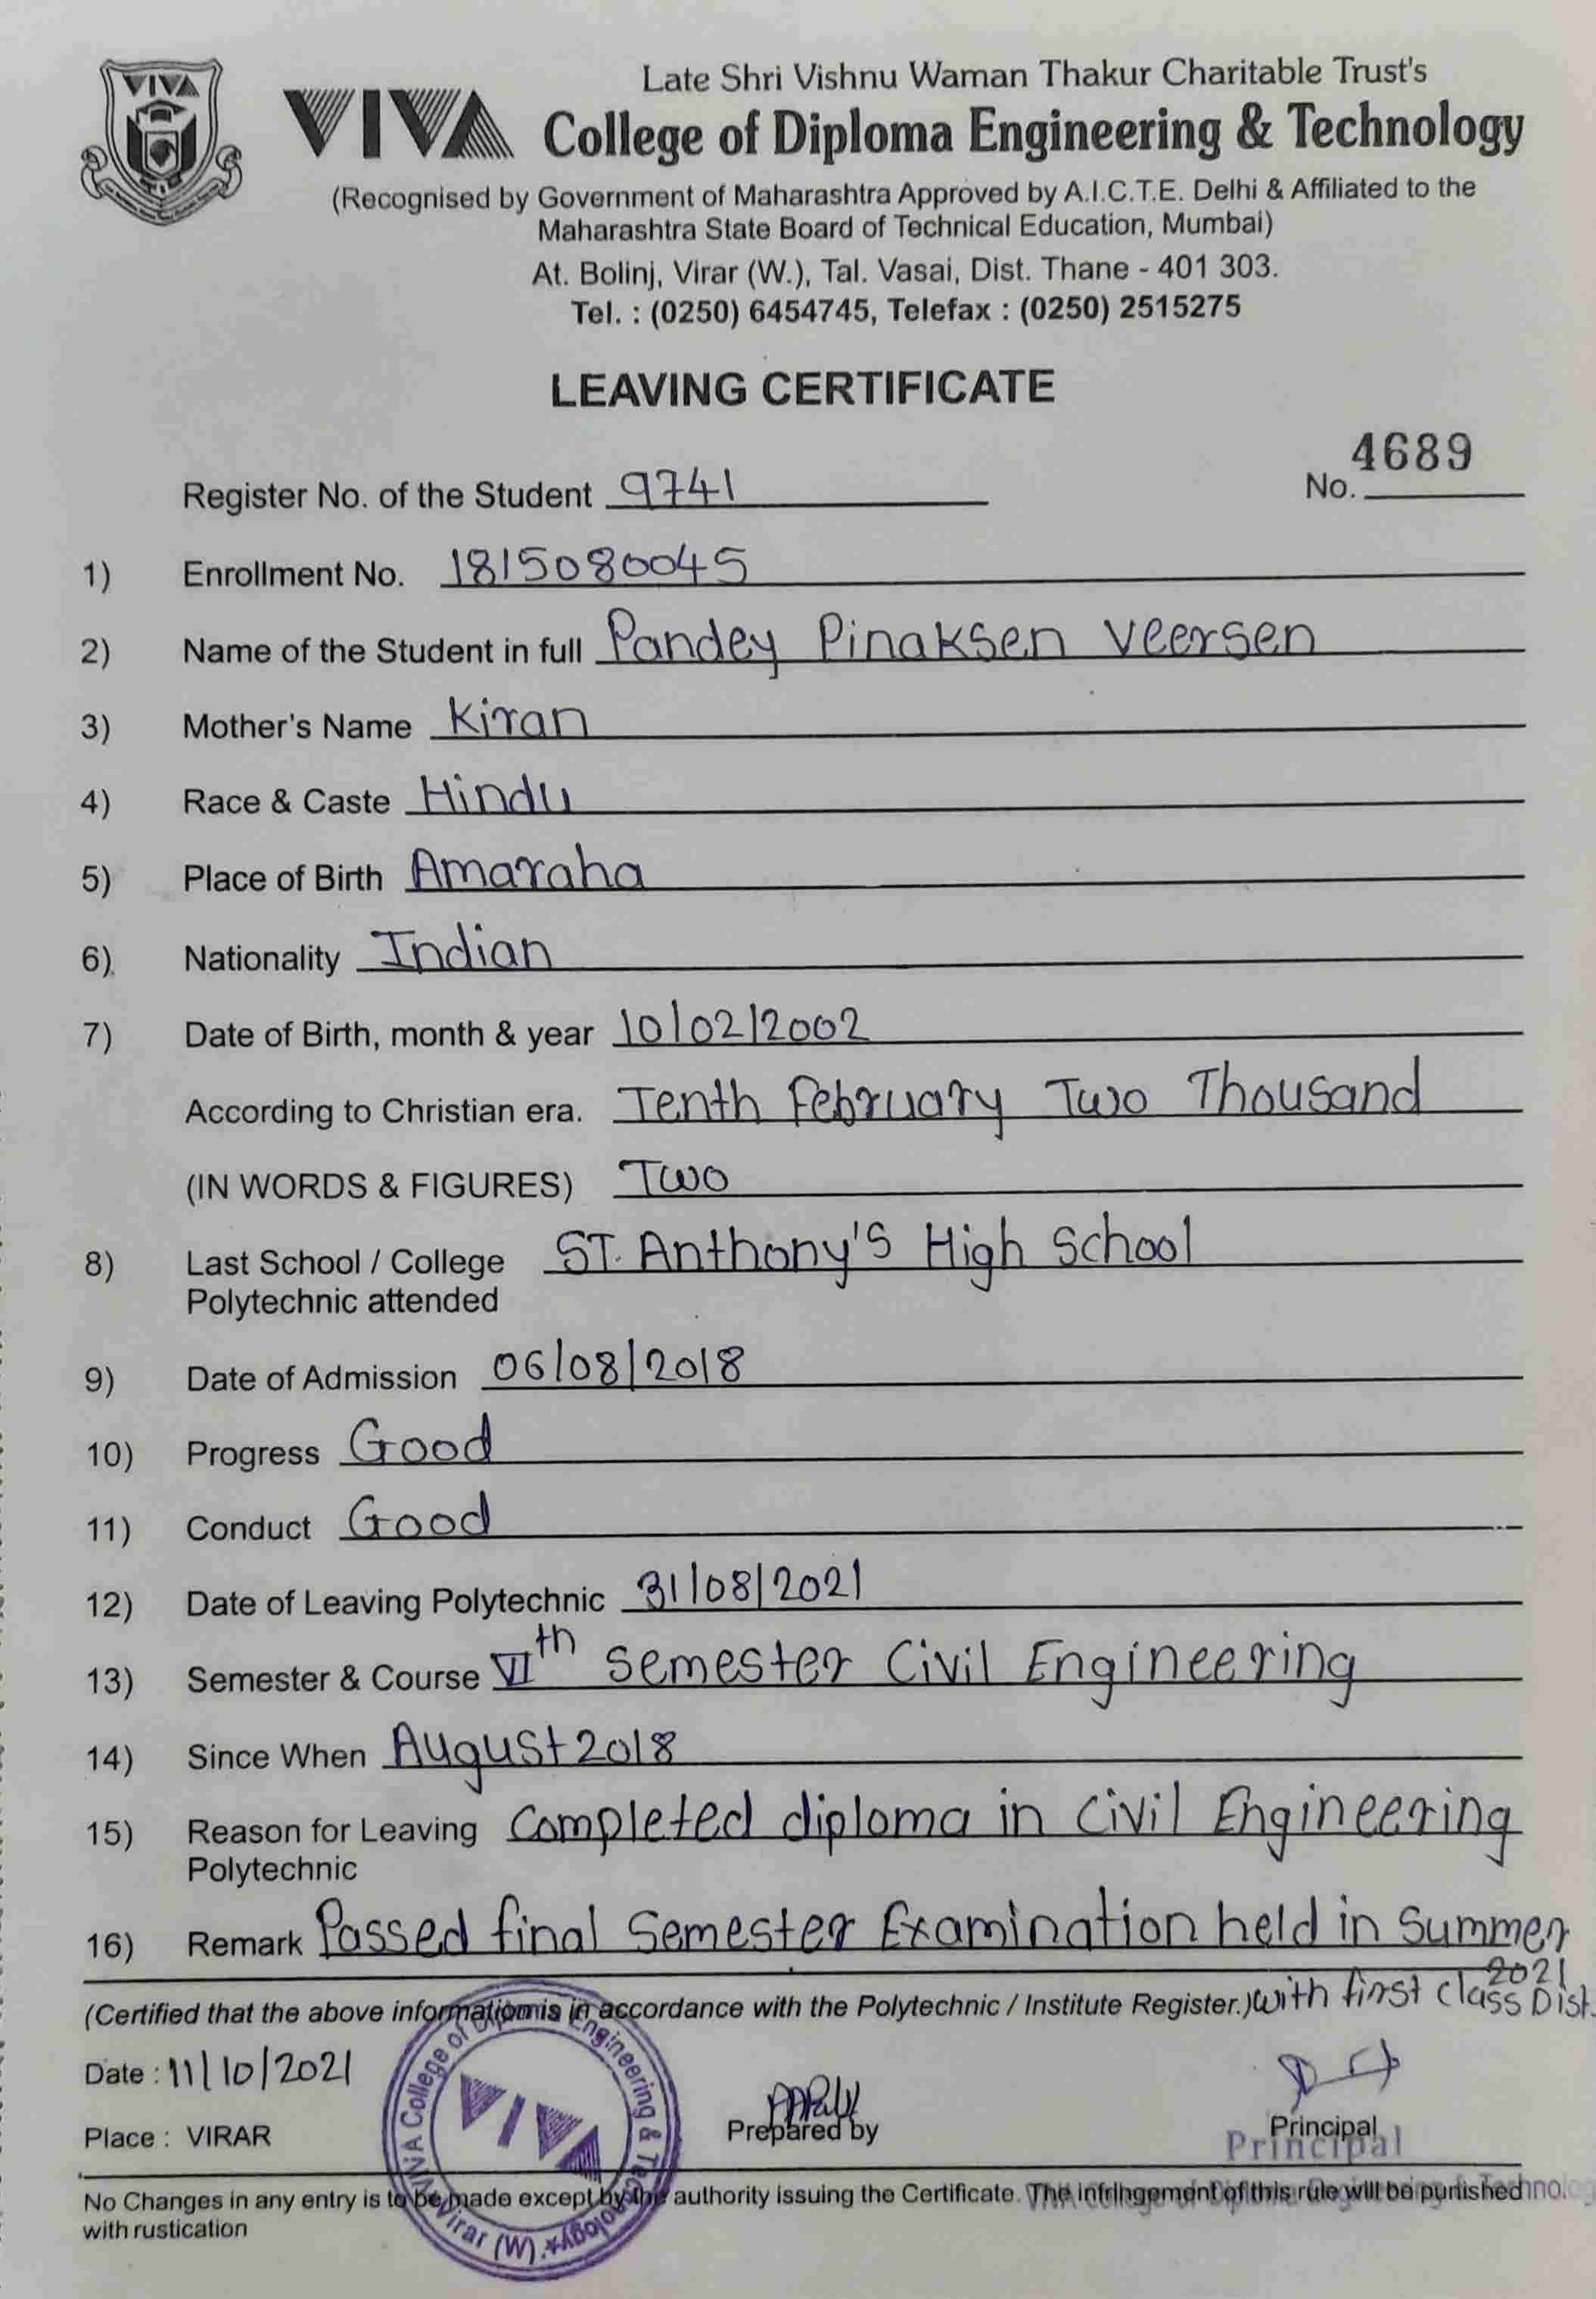 VIVA
Late Shri Vishnu Waman Thakur Charitable Trust's
VIVA College of Diploma Engineering & Technology
(Recognised by Government of Maharashtra Approved by A.I.C.T.E. Delhi & Affiliated to the
Maharashtra State Board of Technical Education, Mumbai)
At. Bolinj, Virar (W.), Tal. Vasai, Dist. Thane - 401 303.
Tel. : (0250) 6454745, Telefax : (0250) 2515275
LEAVING CERTIFICATE
Register No. of the Student 9741 No. 4689
1) Enrollment No. 1815080045
2) Name of the Student in full Pandey Pinaksen Veersen
3) Mother's Name Kiran
4) Race & Caste Hindu
5) Place of Birth Amaraha
6) Nationality Indian
7) Date of Birth, month & year 10/02/2002
According to Christian era. Tenth February Two Thousand
(IN WORDS & FIGURES) Two
8) Last School / College ST. Anthony's High School
Polytechnic attended
9) Date of Admission 06/08/2018
10) Progress Good
11) Conduct Good
12) Date of Leaving Polytechnic 31/08/2021
13) Semester & Course VIth Semester Civil Engineering
14) Since When August 2018
15) Reason for Leaving Completed diploma in Civil Engineering
Polytechnic
16) Remark Passed final Semester Examination held in Summer
2021
(Certified that the above information is in accordance with the Polytechnic / Institute Register.) with first class Dist.
Date : 11/10/2021
Place : VIRAR
Prepared by
Principal
Principal
VIVA College of Diploma Engineering & Technology
Virar (W)
VIVA
No Changes in any entry is to be made except by the authority issuing the Certificate. The infringement of this rule will be punished
with rustication